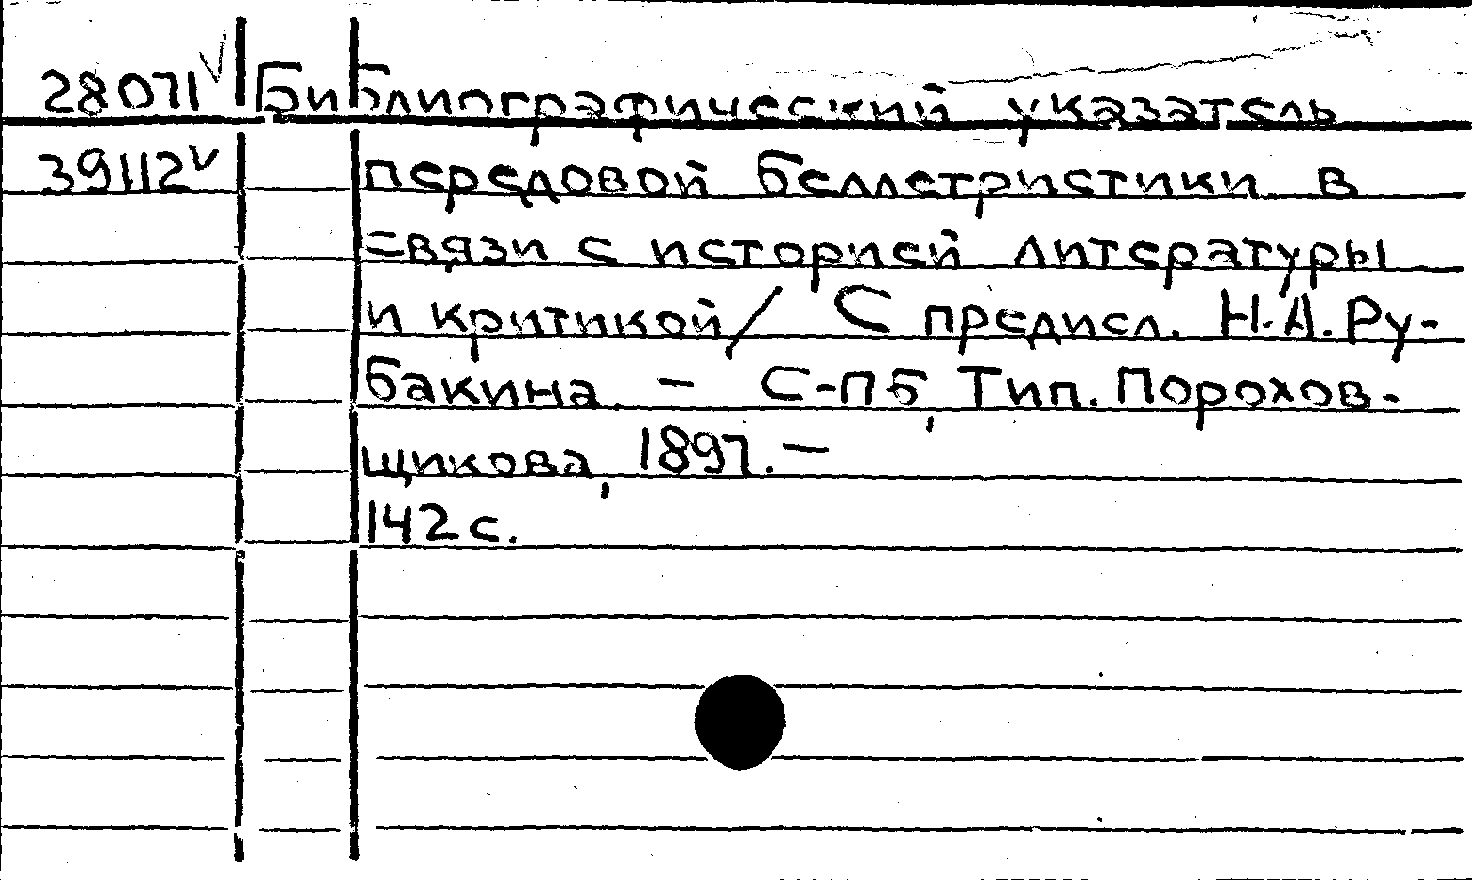 28071 V Библиографический указатель
39112 V передовой беллетристики в
связи с историей литературы
и критикой / С предисл. Н.А.Ру-
бакина. - С-ПБ, Тип. Порохов-
щикова, 1897. -
142 с.